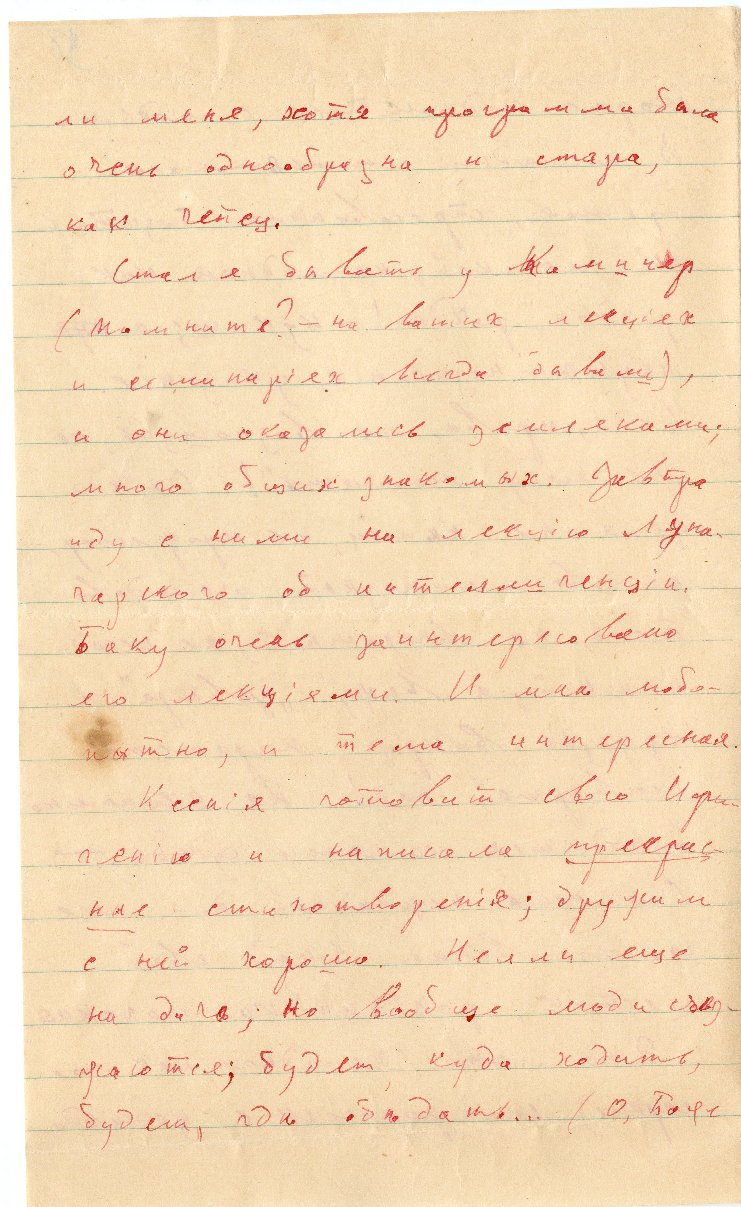 ли меня, хотя программа была
очень однообразна и стара,
как чепец.
Стал я бывать у
(помните? – на ваших лекціях
и семинаріях всегда бывали),
и они оказались земляками;
много общих знакомых. Завтра
иду с ними на лекцію Луна-
чарского об интеллигенціи.
Баку очень заинтересовано
его лекціями. И мнѣ любо-
пытно, и тема интересная.
Ксенія готовит свою Ифи-
генію и написала прекрас-
ные стихотворенія; дружим
с ней хорошо. Нелли еще
на дачѣ; но вообще, люди съѣз-
жаются; будет, куда ходить,
будет, гдѣ обѣдать... (О, Боже